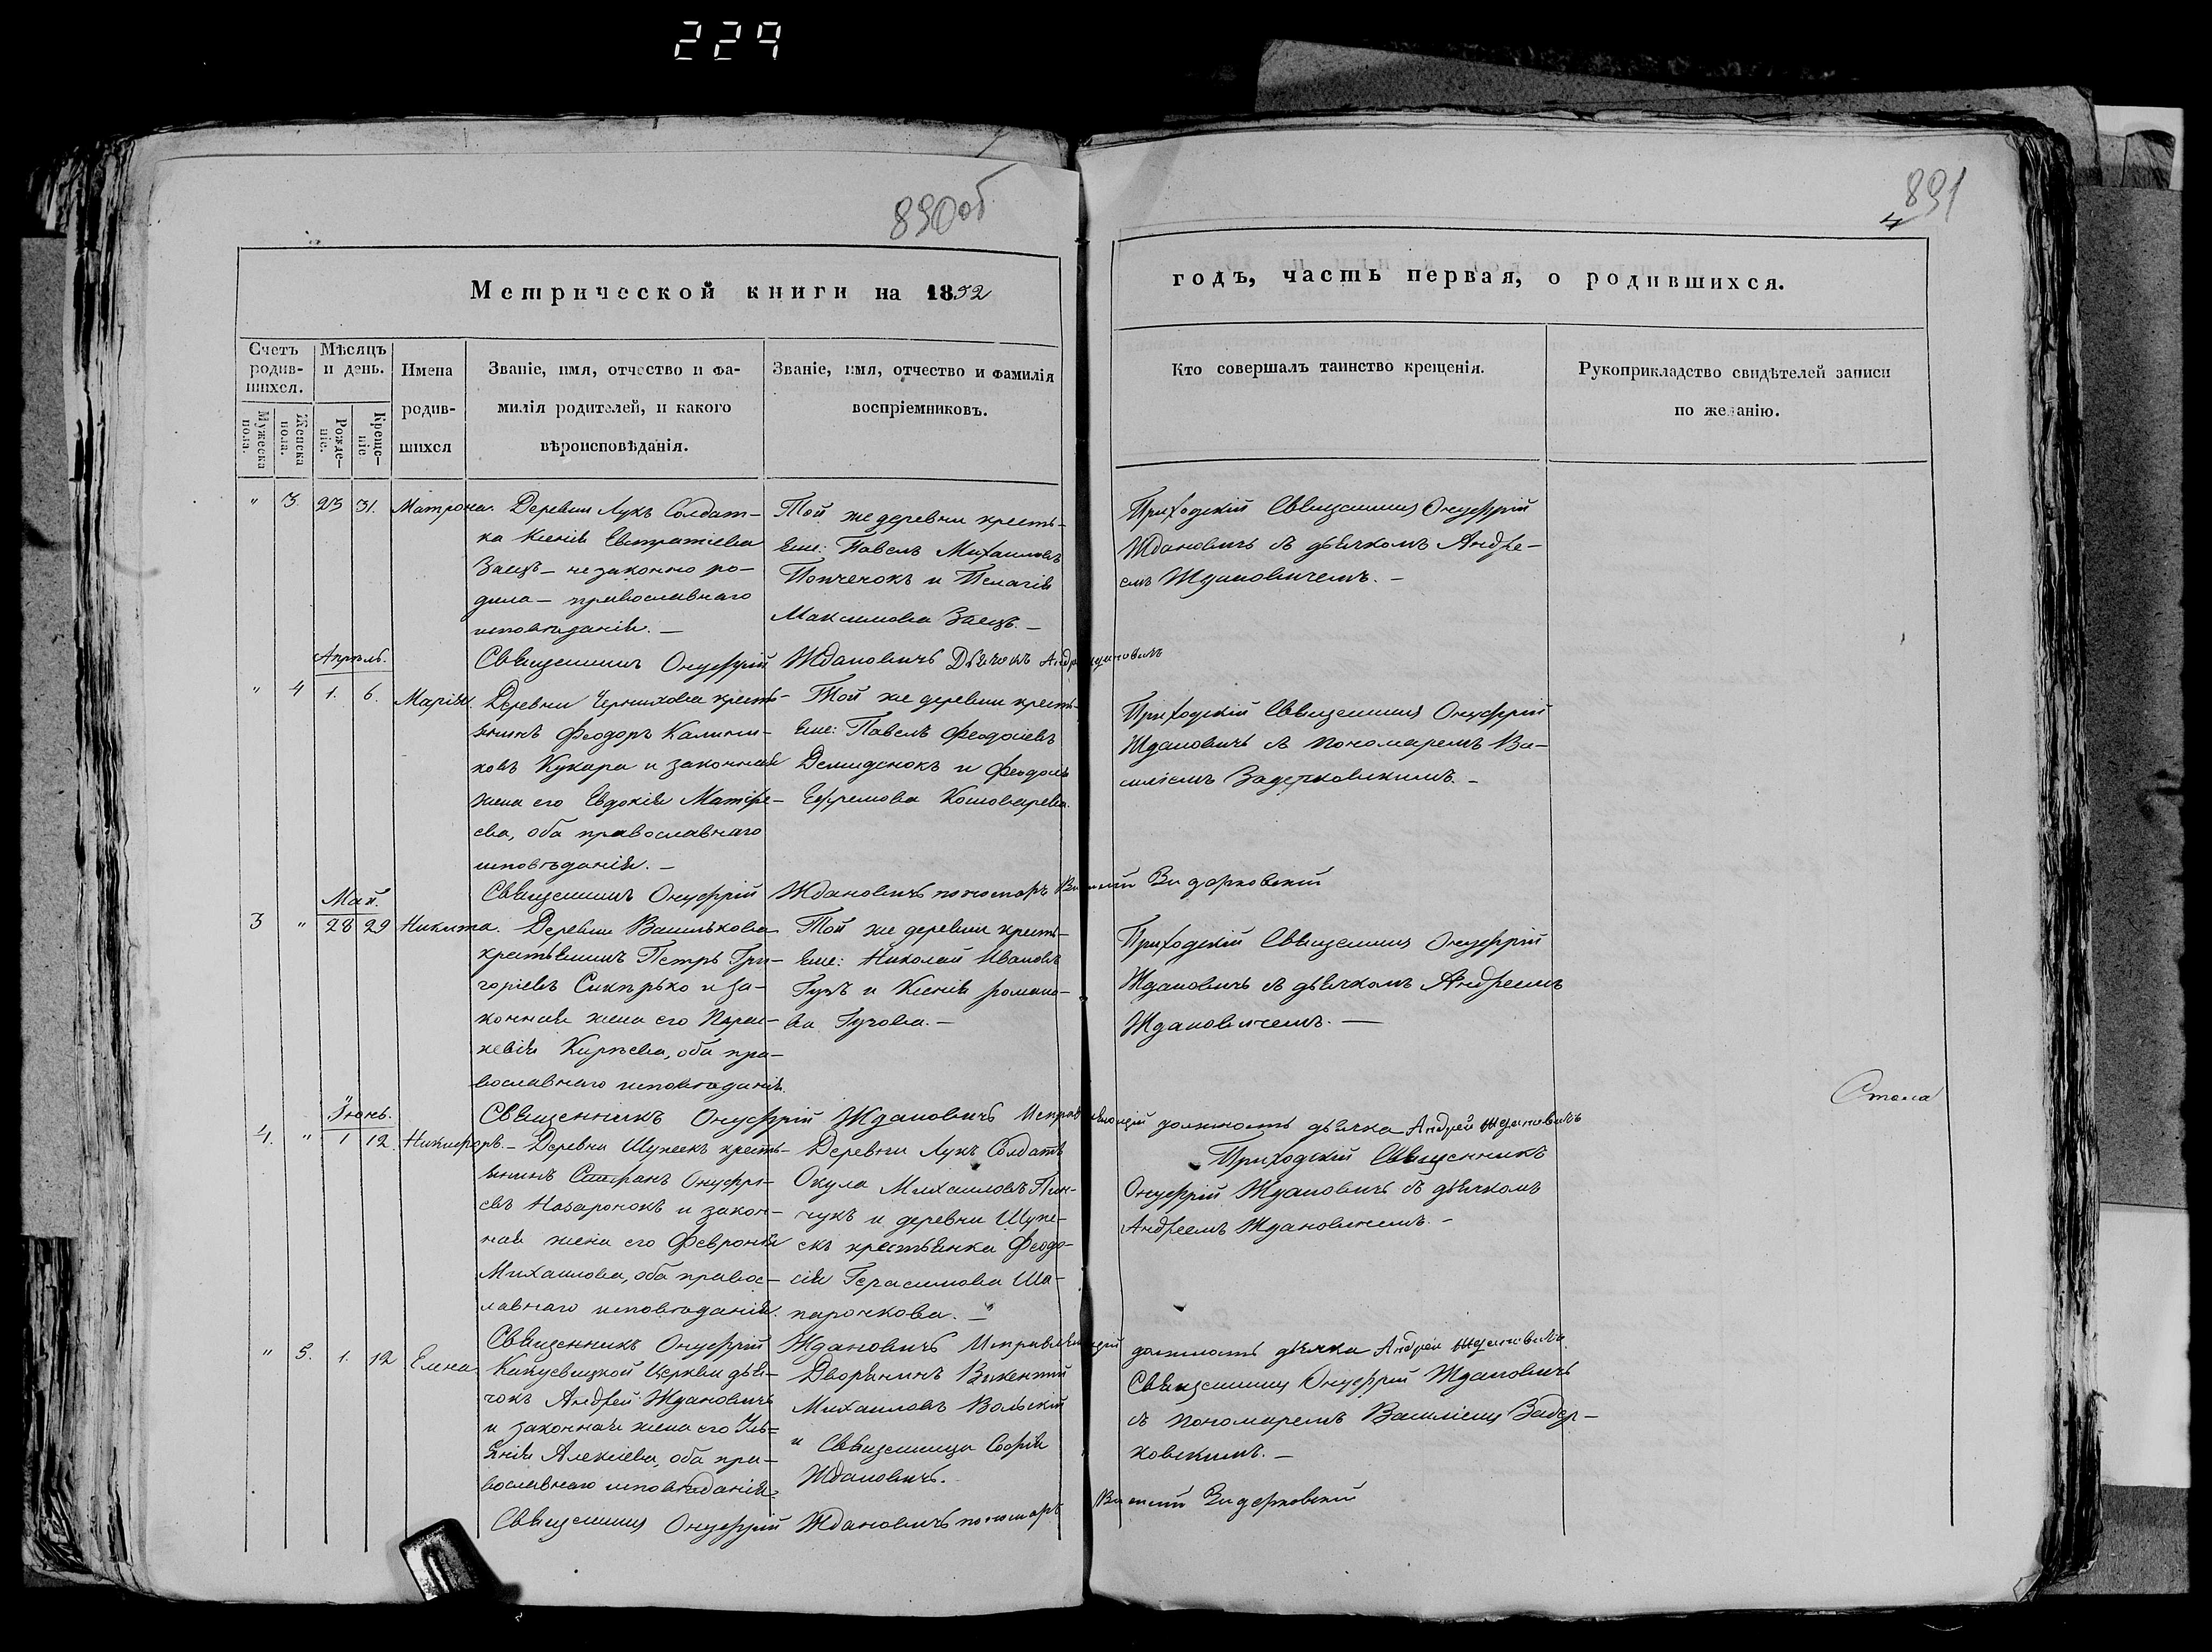 229
890об
891
4
Метрической книги на 1852
годъ, часть первая, о родившихся.
Счетъ родив-шихся.
Мѣсяцъ и день.
Имена родив-шихся
Званіе, имя, отчество и фа-
милія родителей, и какого
вѣроисповѣданія.
Званіе, имя, отчество и фамилія
воспріемниковъ.
Кто совершалъ таинство крещенія.
Рукоприкладство свидѣтелей записи
по желанію.
Мужеска пола.
Женска пола.
Рожде-ніе.
Креще-ніе
" 3. 23 31. Матрона.
Деревни Лукъ Солдат-
ка Ксенія Евстратіева
Заецъ — незаконно ро-
дила — православнаго
исповѣданія. —
Той же деревни кресть-
яне: Павелъ Михаиловъ
Попченокъ и Пелагія
Максимова Заецъ. —
Приходскій Священникъ Онуфрій
Ждановичъ съ дьячкомъ Андре-
емъ Ждановичемъ. —
Священникъ Онуфрій Ждановичъ Дьячокъ Андрей Ждановичъ
Апрѣль.
" 4 1. 6. Марія.
Деревни Черникова кресть-
янинъ Феодоръ Калини-
ковъ Кукара и законная
жена его Евдокія Матфе-
ева, оба православнаго
исповѣданія. —
Той же деревни кресть-
яне: Павелъ Феодосіевъ
Демиденокъ и Феодосія
Ефремова Кошоварева.
Приходскій Священникъ Онуфрій
Ждановичъ съ пономаремъ Ва-
силіемъ Задерковскимъ. —
Священникъ Онуфрій Ждановичъ пономарь Василій Задерковскій
Май.
3 " 28 29 Никита.
Деревни Василькова
крестьянинъ Петръ Гри-
горіевъ Сикирько и за-
конная жена его Парас-
кевія Кирѣева, оба пра-
вославнаго исповѣданія.
Той же деревни кресть-
яне: Николай Ивановъ
Гузъ и Ксенія Романо-
ва Гузова. —
Приходскій Священникъ Онуфрій
Ждановичъ съ дьячкомъ Андреемъ
Ждановичемъ. —
Священникъ Онуфрій Ждановичъ Исправляющій должность дьячка Андрей Ждановичъ
Июнь.
4. " 1 12. Никифоръ. —
Деревни Шунеекъ кресть-
янинъ Стефанъ Онуфрі-
евъ Назаронокъ и закон-
ная жена его Февронія
Михаилова, оба правос-
лавнаго исповѣданія.
Деревни Лукъ Солдатъ
Окула Михаиловъ Пин-
чукъ и деревни Шуне-
екъ крестьянка Феодо-
сія Герасимова Ша-
парочкова. —
Приходскій Священникъ
Онуфрій Ждановичъ съ дьячкомъ
Андреемъ Ждановичемъ. —
Священникъ Онуфрій Ждановичъ Исправляющій должность дьячка Андрей Ждановичъ
" 5. 1. 12 Елена
Церкви дья-
чокъ Андрей Ждановичъ
и законная жена его Уль-
янія Алексіева, оба пра-
вославнаго исповѣданія.
Дворянинъ Викентій
Михаиловъ Вольскій
и Священница Софія
Ждановичъ.
Священникъ Онуфрій Ждановичъ
съ пономаремъ Василіемъ Задер-
ковскимъ. —
Священникъ Онуфрій Ждановичъ пономарь Василій Задерковскій